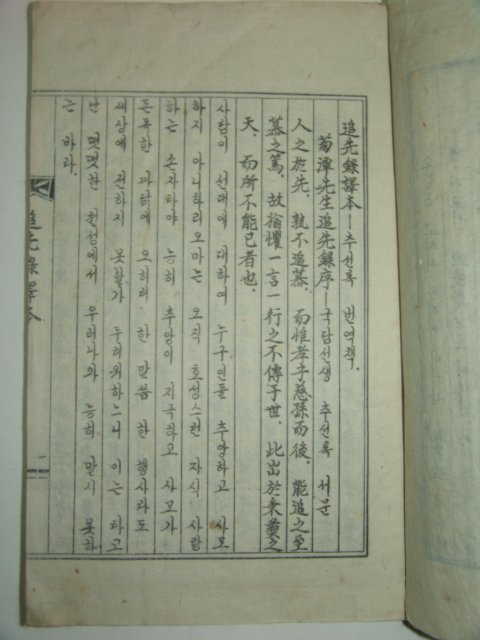 追先錄譯本 — 추선록 번역책.
菊潭先生追先錄序 — 국담선생 추선록 서문
人之於先, 孰不追慕, 而惟孝子慈孫而後, 能追之至
慕之篤, 故猶懼一言一行之不傳于世, 此出於秉彛之
天, 而所不能已者也.
사람이 선대에 대하여 누구인들 추앙하고 사모
하지 아니하리오마는 오직 효성스런 자식 사랑
하는 손자라야 능히 추앙이 지극하고 사모가
돈독한 까닭에 오히려 한 말씀 한 행사라도
세상에 전하지 못할가 두려워하느니 이는 타고
난 떳떳한 천성에서 우러나와 능히 말기 못하
는 바라.
追先錄譯本